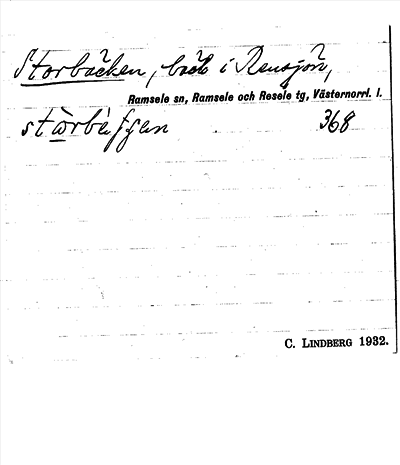 Storbäcken, bäck i Rensjön,
Ramsele sn, Ramsele och Resele tg, Västernorrl. l.
368
C. LINDBERG 1932.